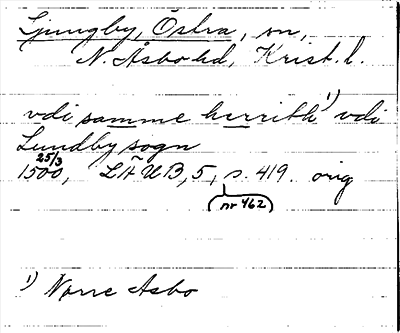 Ljungby, Östra, sn,
N. Åsbo hd, Krist. l.
vdi samme herrith 1) vdi
Lundby sogn
25/3
1500, LÄUB, 5, s. 419. orig
(nr 462)
1) Norre Asbo